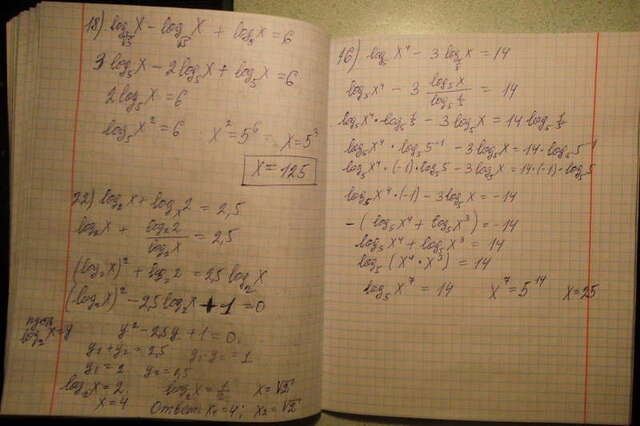 18) log∛5 X − log√5 X + log5 X = 6
3 log5 X − 2 log5 X + log5 X = 6
2 log5 X = 6
log5 X² = 6 X² = 5⁶ X = 5³
X = 125
22) log2 X + logX 2 = 2,5
log2 X + log2 2 / log2 X = 2,5
(log2 X)² + log2 2 = 2,5 log2 X
(log2 X)² − 2,5 log2 X + 1 = 0
пусть log2 X = y y² − 2,5y + 1 = 0
y1 + y2 = 2,5 y1·y2 = 1
y1 = 2 y2 = 0,5
log2 X = 2 log2 X = 1/2 X = √2
X = 4 Ответ X1 = 4; X2 = √2
16) log5 X⁴ − 3 log1/5 X = 14
log5 X⁴ − 3 log5 X / log5 1/5 = 14
log5 X⁴ · log5 1/5 − 3 log5 X = 14 log5 1/5
log5 X⁴ · log5 5⁻¹ − 3 log5 X = 14 · log5 5⁻¹
log5 X⁴ · (−1) · log5 5 − 3 log5 X = 14 · (−1) · log5 5
log5 X⁴ · (−1) − 3 log5 X = −14
−(log5 X⁴ + log5 X³) = −14
log5 X⁴ + log5 X³ = 14
log5 (X⁴ · X³) = 14
log5 X⁷ = 14 X⁷ = 5¹⁴ X = 25